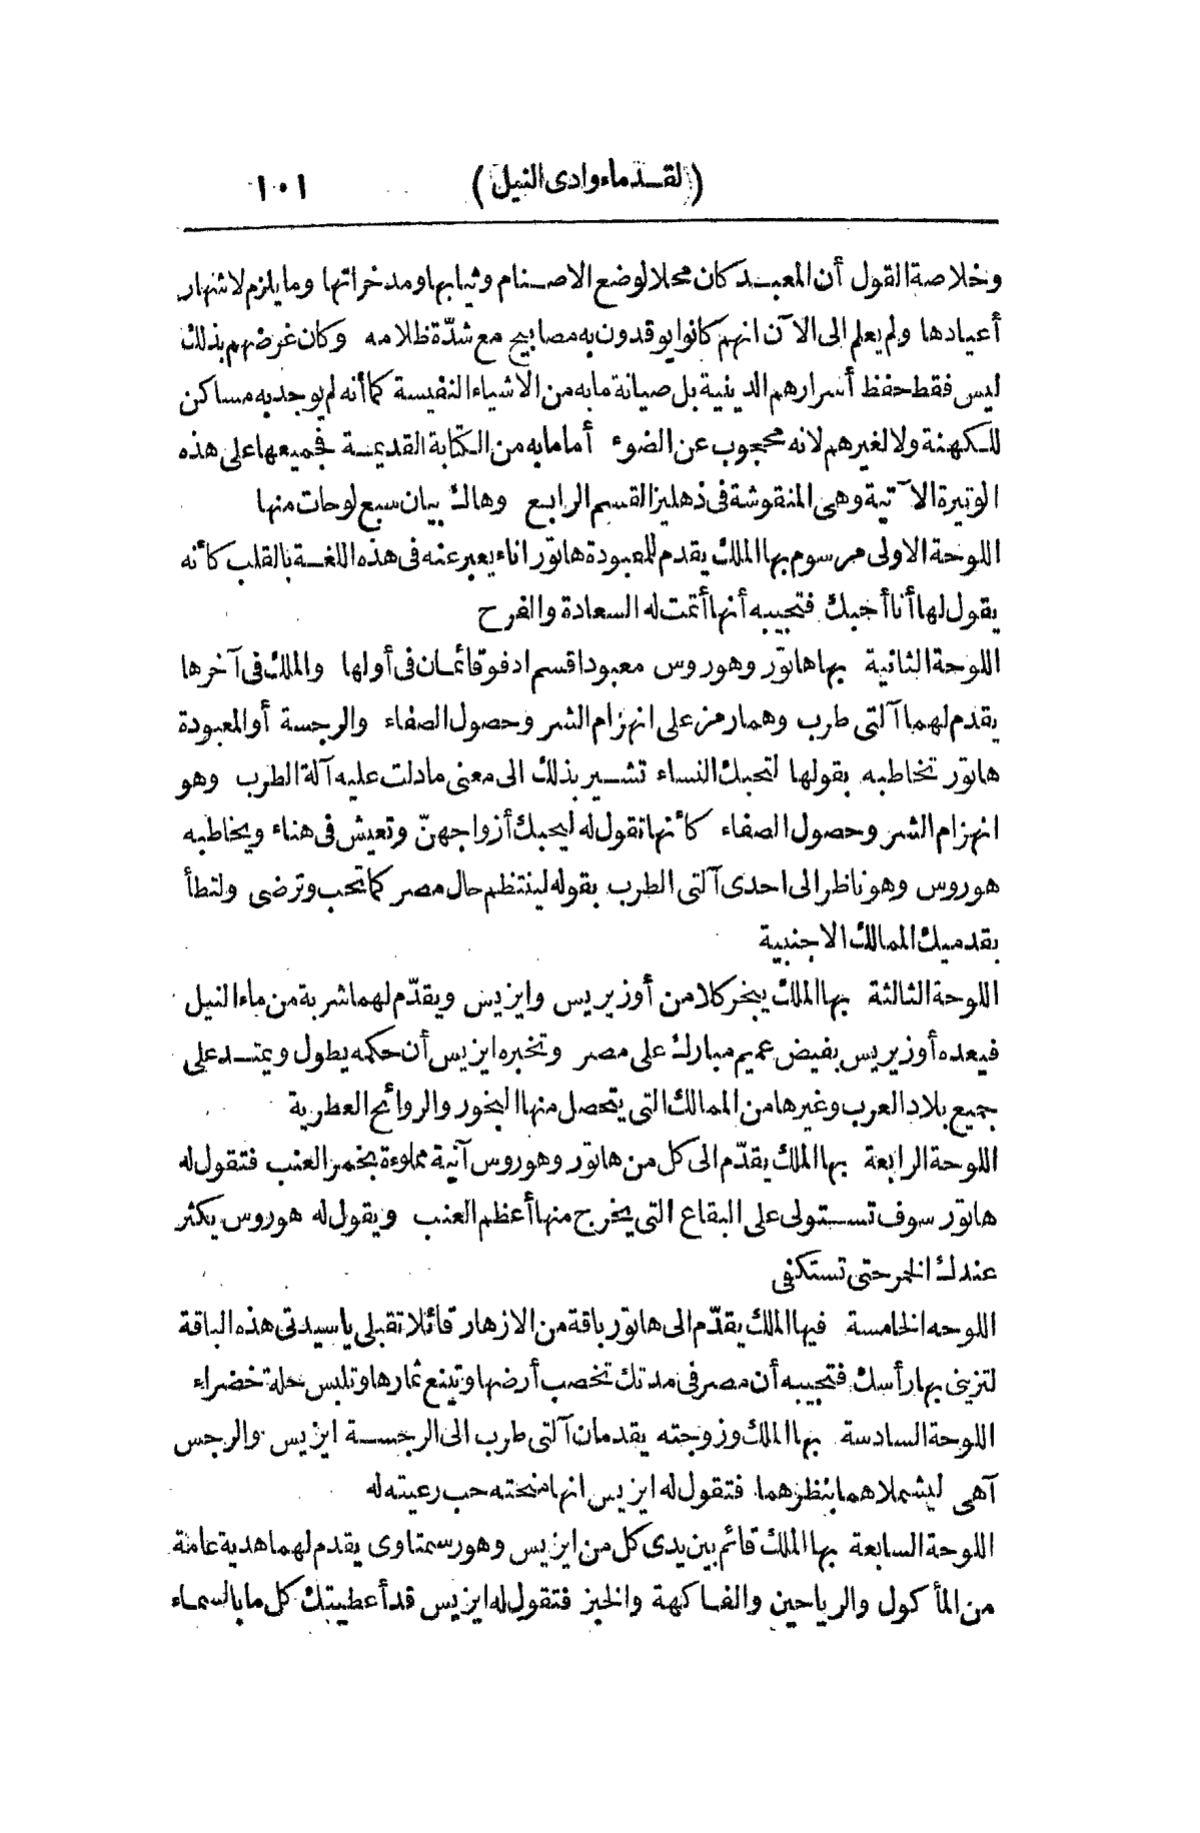 (لقدماء وادى النيل) ١٠١
وخلاصة القول أن المعبد كان محلا لوضع الاصنام وثيابها ومدخراتها وما يلزم لاشهار
أعيادها ولم يعلم الى الآن انهم كانوا يوقدون به مصابيح مع شدّة ظلامه وكان غرضهم بذلك
ليس فقط حفظ أسرارهم الدينية بل صيانة ما به من الاشياء النفيسة كما أنه لم يوجد به مساكن
للكهنة ولا لغيرهم لانه محجوب عن الضوء أما ما به من الكتابة القديمة فجميعها على هذه
الوتيرة الآتية وهى المنقوشة فى دهليز القسم الرابع وهاك بيان سبع لوحات منها
اللوحة الاولى مرسوم بها الملك يقدم للمعبودة هاتور اناء يعبر عنه فى هذه اللغة بالقلب كأنه
يقول لها أنا أحبك فتجيبه أنها أتمت له السعادة والفرح
اللوحة الثانية بها هاتور وهوروس معبودا قسم ادفو قائمان فى أولها والملك فى آخرها
يقدم لهما آلتى طرب وهما رمز على انهزام الشر وحصول الصفاء والرجسة أو المعبودة
هاتور تخاطبه بقولها لتحبك النساء تشير بذلك الى معنى ما دلت عليه آلة الطرب وهو
انهزام الشر وحصول الصفاء كأنها تقول له ليحبك أزواجهنّ وتعيش فى هناء ويخاطبه
هوروس وهو ناظر الى احدى آلتى الطرب بقوله لينتظم حال مصر كما تحب وترضى ولتطأ
بقدميك الممالك الاجنبية
اللوحة الثالثة بها الملك يبخر كلا من أوزيريس وايزيس ويقدّم لهما شربة من ماء النيل
فيعده أوزيريس بفيض عميم مبارك على مصر وتخبره ايزيس أن حكمه يطول ويمتد على
جميع بلاد العرب وغيرها من الممالك التى يتحصل منها البخور والروائح العطرية
اللوحة الرابعة بها الملك يقدّم الى كل من هاتور وهوروس آنية مملوءة بخمر العنب فتقول له
هاتور سوف تستولى على البقاع التى يخرج منها أعظم العنب ويقول له هوروس يكثر
عندك الخمر حتى تستكفى
اللوحه الخامسة فيها الملك يقدّم الى هاتور باقة من الازهار قائلا تقبلى يا سيدتى هذه الباقة
لتزينى بها رأسك فتجيبه أن مصر فى مدتك تخصب أرضها وتينع ثمارها وتلبس حلة خضراء
اللوحة السادسة بها الملك وزوجته يقدمان آلتى طرب الى الرجسة ايزيس والرجس
آهى ليشملاهما بنظرهما فتقول له ايزيس انها منحته حب رعيته له
اللوحة السابعة بها الملك قائم بين يدى كل من ايزيس وهورسمتاوى يقدم لهما هدية عامة
من المأكول والرياحين والفاكهة والخبز فتقول له ايزيس قد أعطيتك كل ما بالسماء